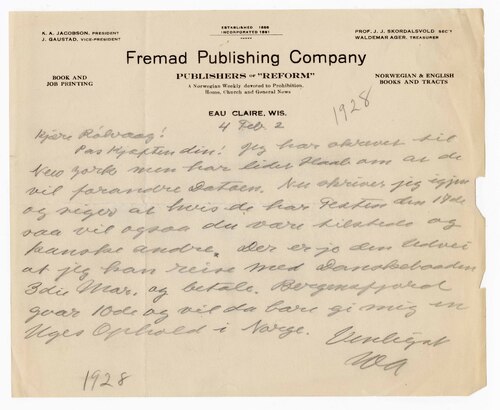 K. A. JACOBSON, PRESIDENT
J. GAUSTAD, VICE-PRESIDENT
ESTABLISHED 1886
INCORPORATED 1891
PROF. J. J. SKORDALSVOLD, SEC'Y
WALDEMAR AGER, TREASURER
Fremad Publishing Company
PUBLISHERS OF "REFORM"
A Norwegian Weekly devoted to Prohibition,
Home, Church and General News
BOOK AND
JOB PRINTING
NORWEGIAN & ENGLISH
BOOKS AND TRACTS
EAU CLAIRE, WIS.
1928
4 Feb. 2
Kjære Rölvaag!
Pas Kjæften din! Jeg har skrevet til
New York men har liden Haab om at de
vil forandre Datoen. Nu skriver jeg igjen
og siger at hvis de har Festen den 17de
saa vil ogsaa du være tilstede og
kanske andre. Der er jo den Udvei
at jeg kan reise med Danskebaaden
3die Mar. og betale. Bergensfjord
gaar 10de og vil da bare gi mig en
Uges Ophold i Norge.
Venligst
WA
1928